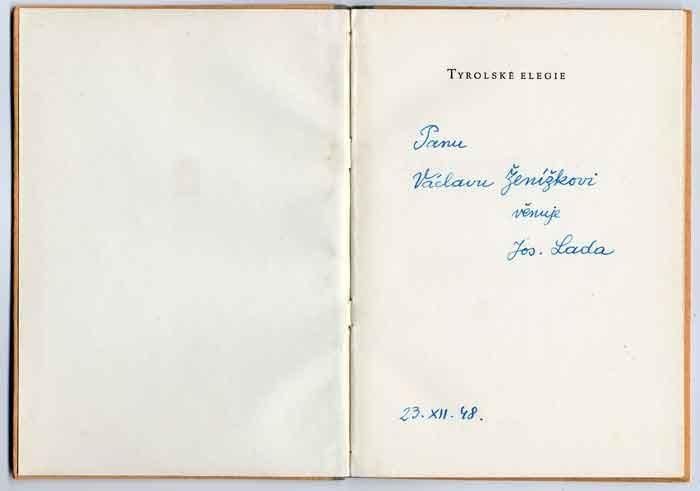 TYROLSKÉ ELEGIE
Panu
Václavu Ženíškovi
věnuje
Jos. Lada
23. XII. 48.